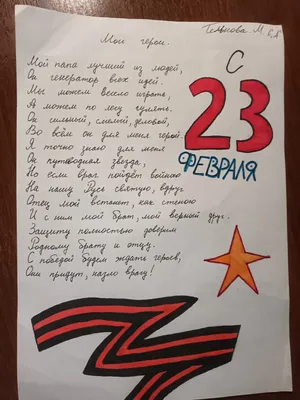 Тельнова. М 6"А"
Мои герои.
Мой папа лучший из людей,
Он генератор всех идей.
Мы можем весело играть
А можем по лесу гулять.
Он сильный, смелый, деловой,
Во всём он для меня герой.
Я точно знаю для меня
Он путеводная звезда,
Но если враг пойдёт войною
На нашу Русь святую, вдруг
Отец мой встанет, как стеною
И с ним мой брат, мой верный друг.
Защиту полностью доверим
Родному брату и отцу.
С победой будем ждать героев,
Они придут, назло врагу!
С
23
ФЕВРАЛЯ